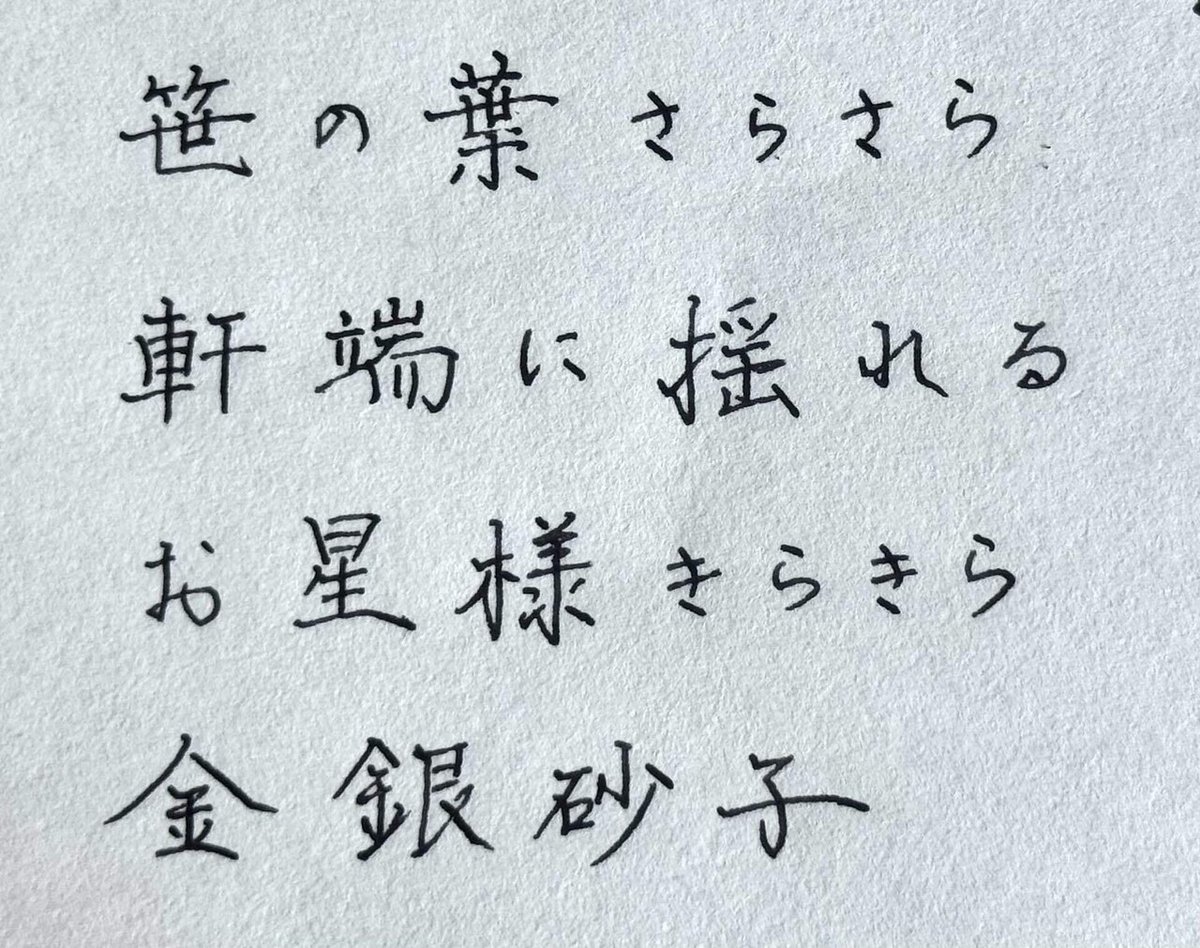 笹の葉さらさら
軒端に揺れる
お星様きらきら
金銀砂子